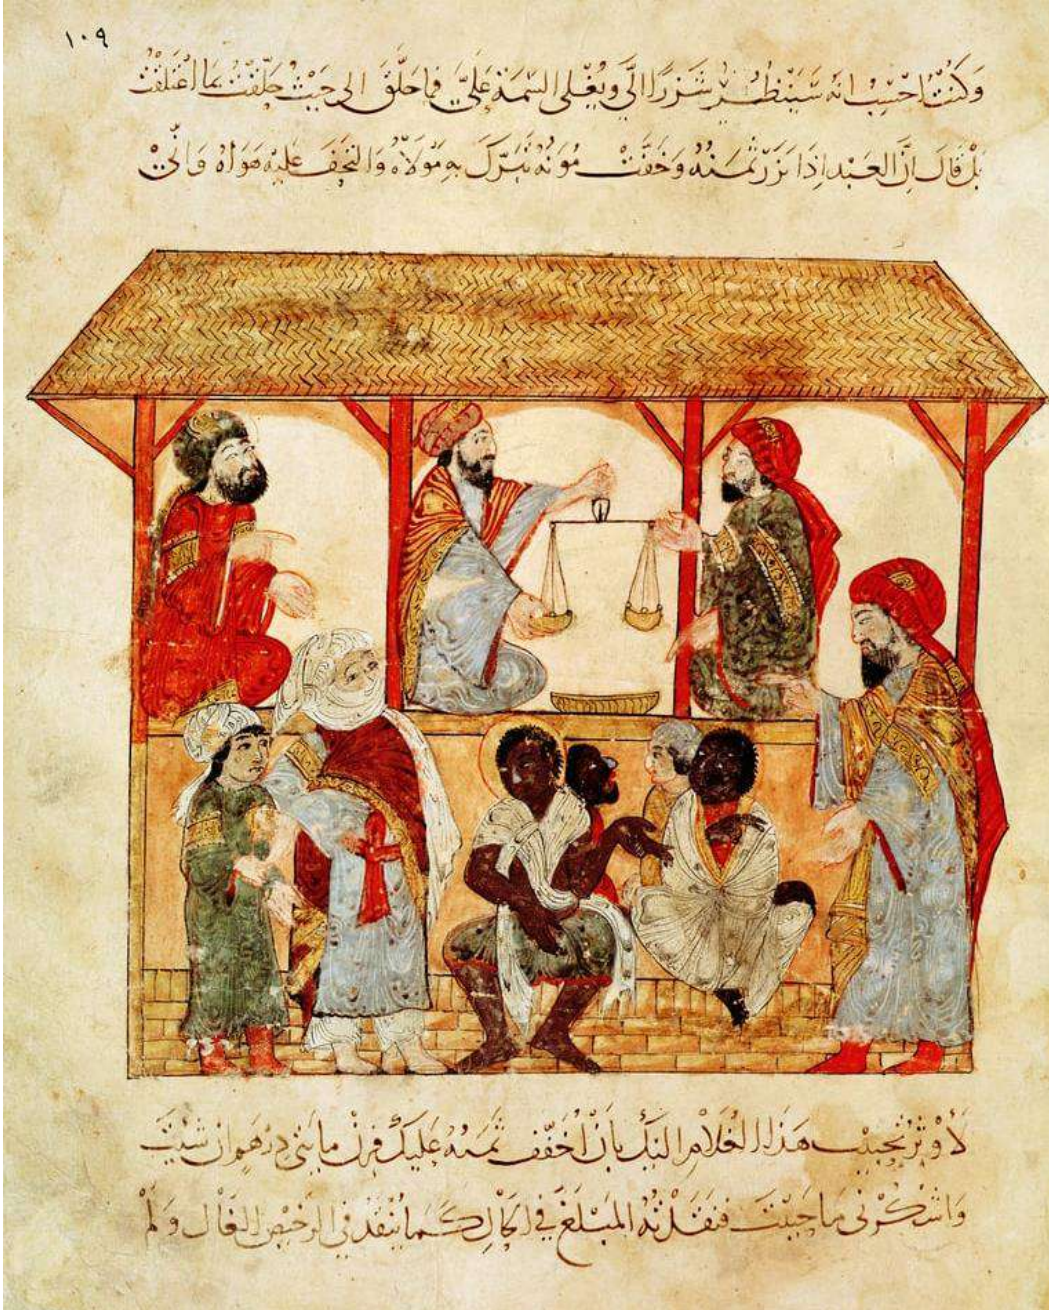 ١٠٩
وكنت احسب انه سينظر شزرا الي ويغلي السيمة علي فما حلق الى حيث حلقت بما اعتلقت
بل قال ان العبد اذا نزر ثمنه وخفت مونه تبرك به مولاه والتحف عليه هواه واني
لاوثر تحبيب هذا الغلام اليك بان اخفف ثمنه عليك فزن مايتي درهم ان شيت
واشكرني ما حييت فنقدته المبلغ في الحال كما ينقد في الرخيص الغال ولم